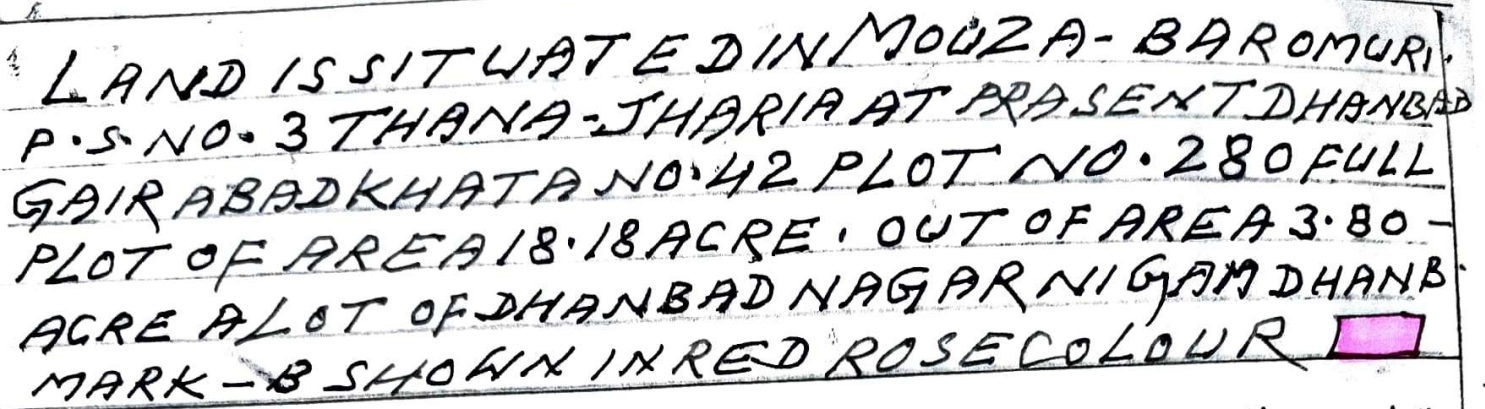 LAND IS SITUATED IN MOUZA - BAROMURI.
P.S. NO. 3 THANA - JHARIA AT PRASENT DHANBAD
GAIR ABAD KHATA NO. 42 PLOT NO. 280 FULL
PLOT OF AREA 18.18 ACRE. OUT OF AREA 3.80 -
ACRE ALOT OF DHANBAD NAGAR NIGAM DHANB.
MARK - B SHOWN IN RED ROSE COLOUR